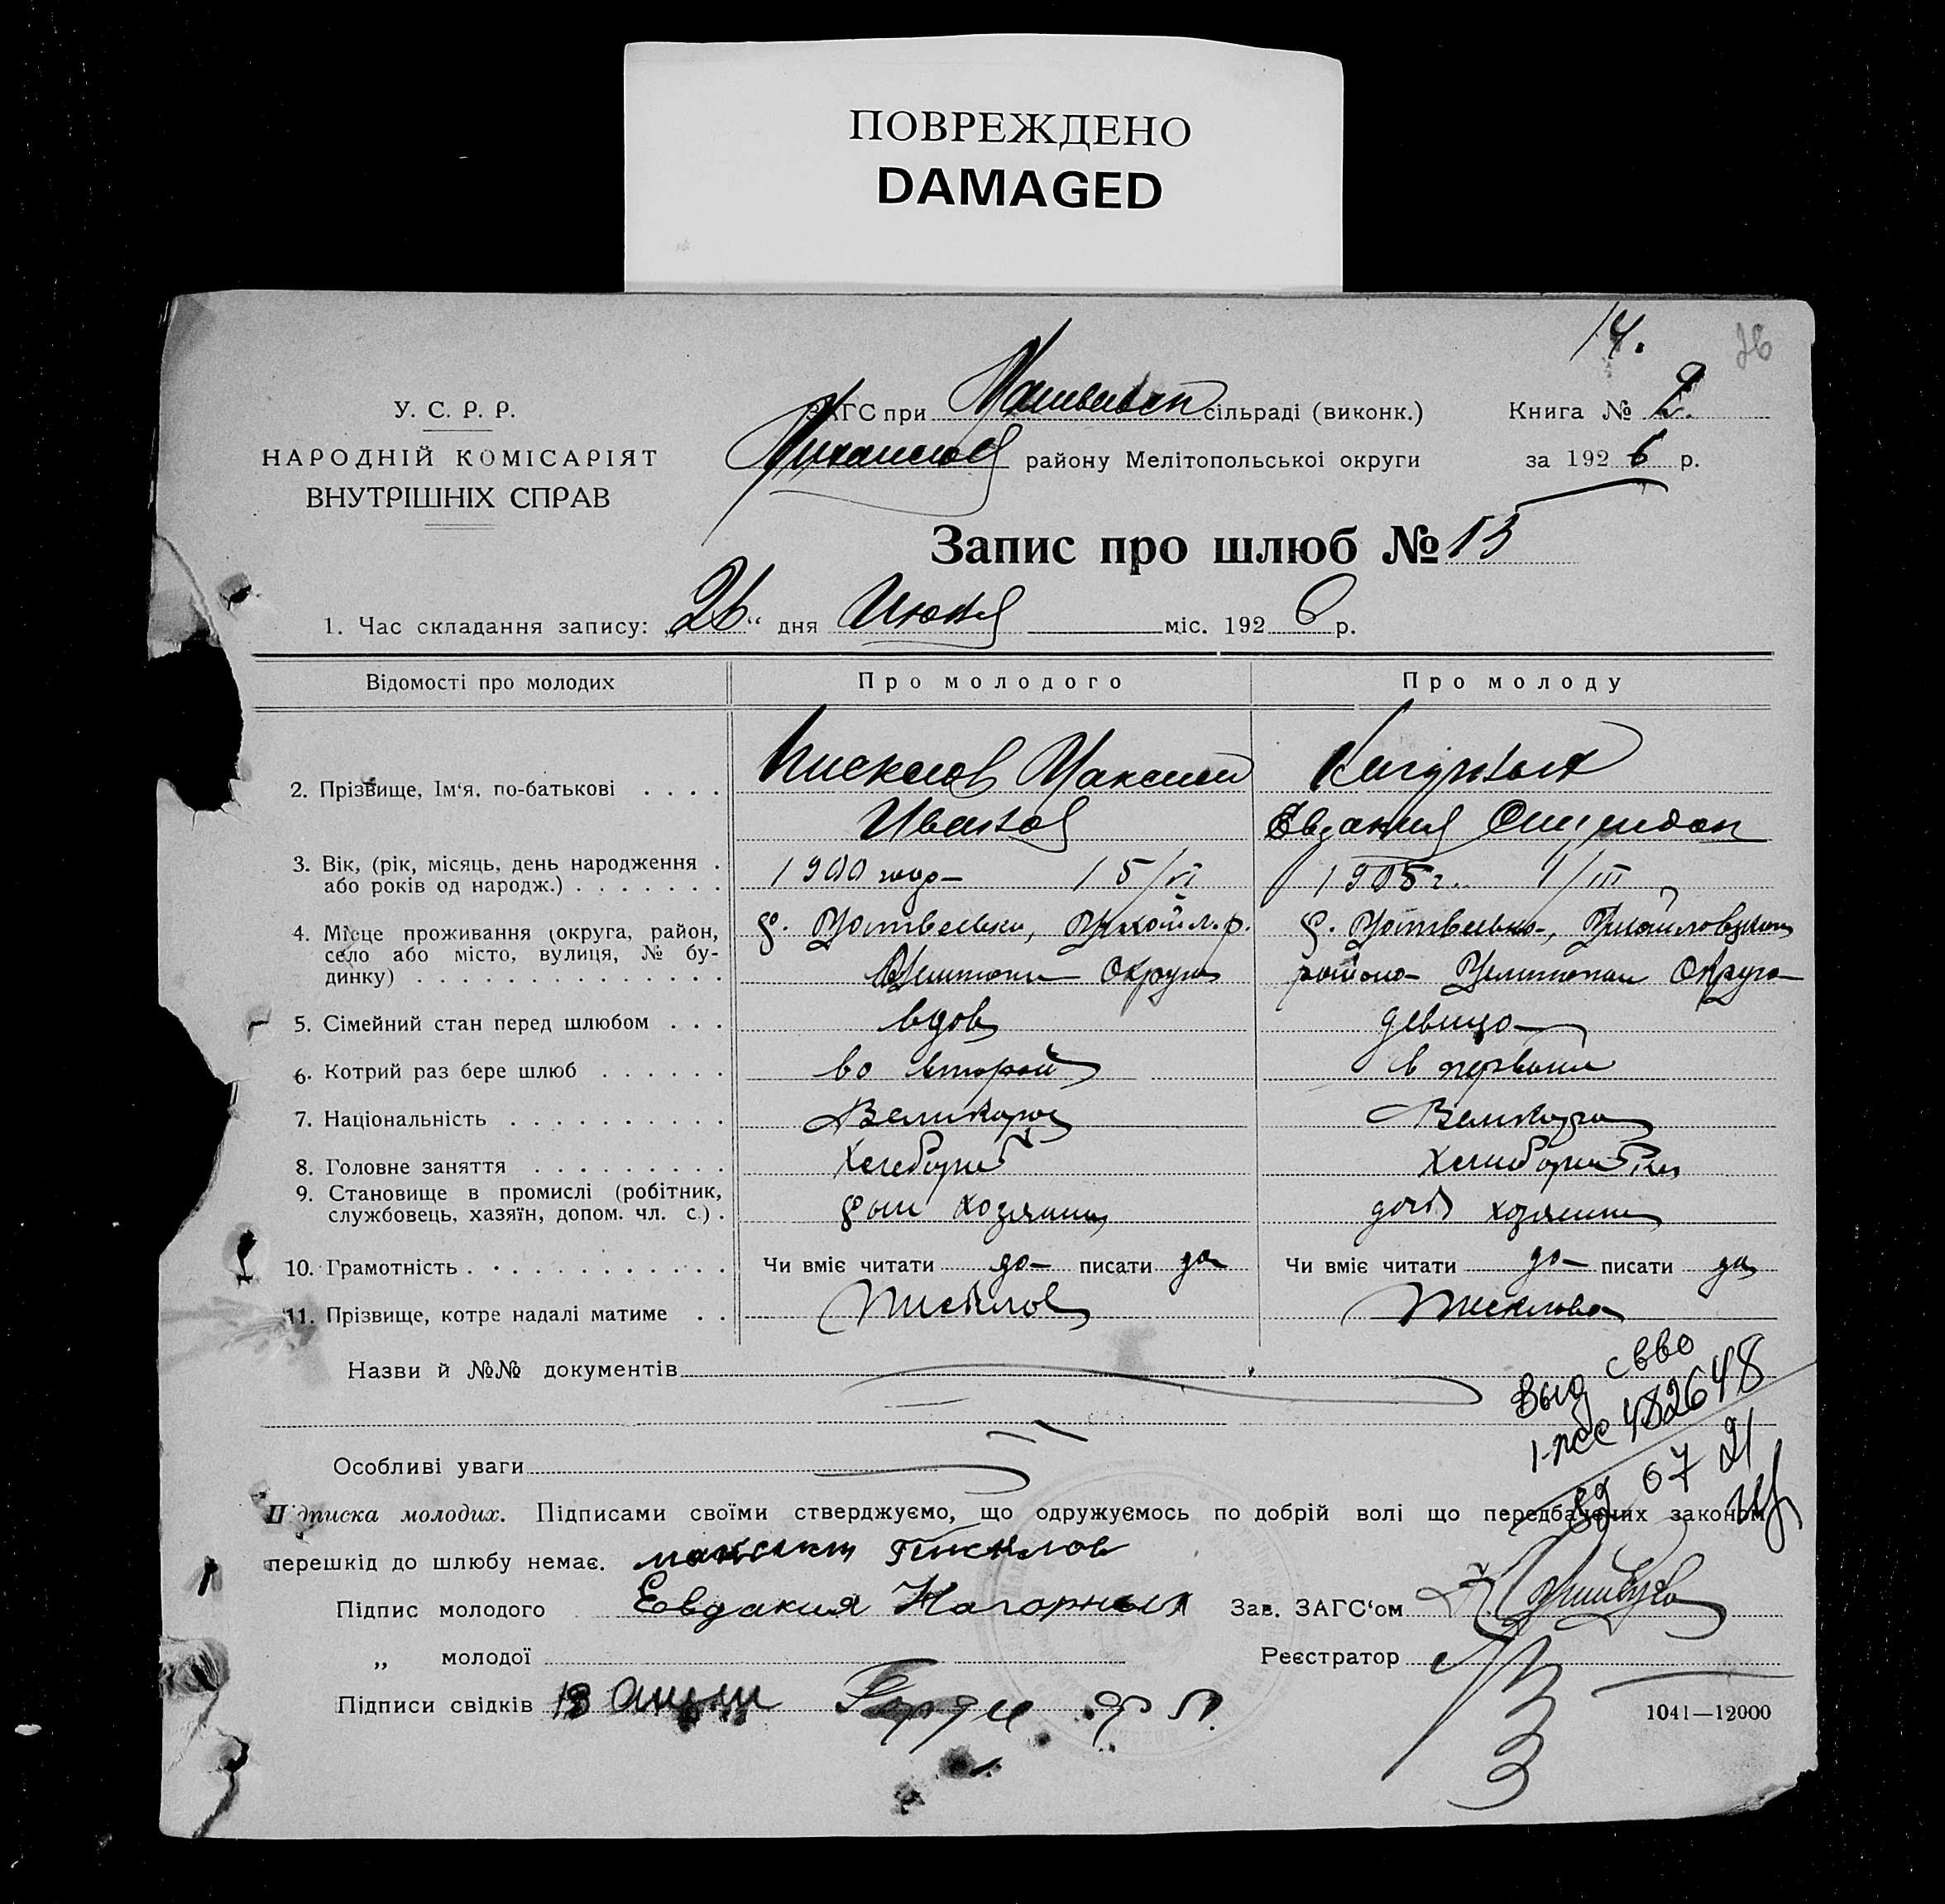 ПОВРЕЖДЕНО
DAMAGED
14.
26
У. С. Р. Р.
НАРОДНІЙ КОМІСАРІЯТ
ВНУТРІШНІХ СПРАВ
ЗАГС при сільраді (виконк.)
району Мелітопольської округи
Книга № 2.
за 1926 р.
Запис про шлюб № 15
1. Час складання запису: „26“ дня Июля міс. 1926 р.
Відомості про молодих Про молодого Про молоду
2. Прізвище, Ім'я, по-батькові . . . . Максим
Евдакия
3. Вік, (рік, місяць, день народження . 1900 год 15/VI 1905 г. 1/III
або років од народж.) . . . . . . .
4. Місце проживання (округа, район, с. Матвеевки, Михайл. р. с. Матвеевка,
село або місто, вулиця, № бу- Округа района Округа
динку) . . . . . . . . . . . . . .
5. Сімейний стан перед шлюбом . . . вдов девица
6. Котрий раз бере шлюб . . . . . . во второй в первый
7. Національність . . . . . . . . . . Великорос Великорос
8. Головне заняття . . . . . . . . . Хлебороб
9. Становище в промислі (робітник, сын хозяина дочь хозяина
службовець, хазяїн, допом. чл. с.) .
10. Грамотність . . . . . . . . . . . . Чи вміє читати да писати да Чи вміє читати да писати да
11. Прізвище, котре надалі матиме . . Писклов Писклова
Назви й №№ документів
выд свво
482648
07 21
Особливі уваги
Підписка молодих. Підписами своїми стверджуємо, що одружуємось по добрій волі що передбачених законом
перешкід до шлюбу немає. максим Писклов
Підпис молодого Евдакия Нагорных Зав. ЗАГС'ом
„ молодої Реєстратор
Підписи свідків
1041—12000